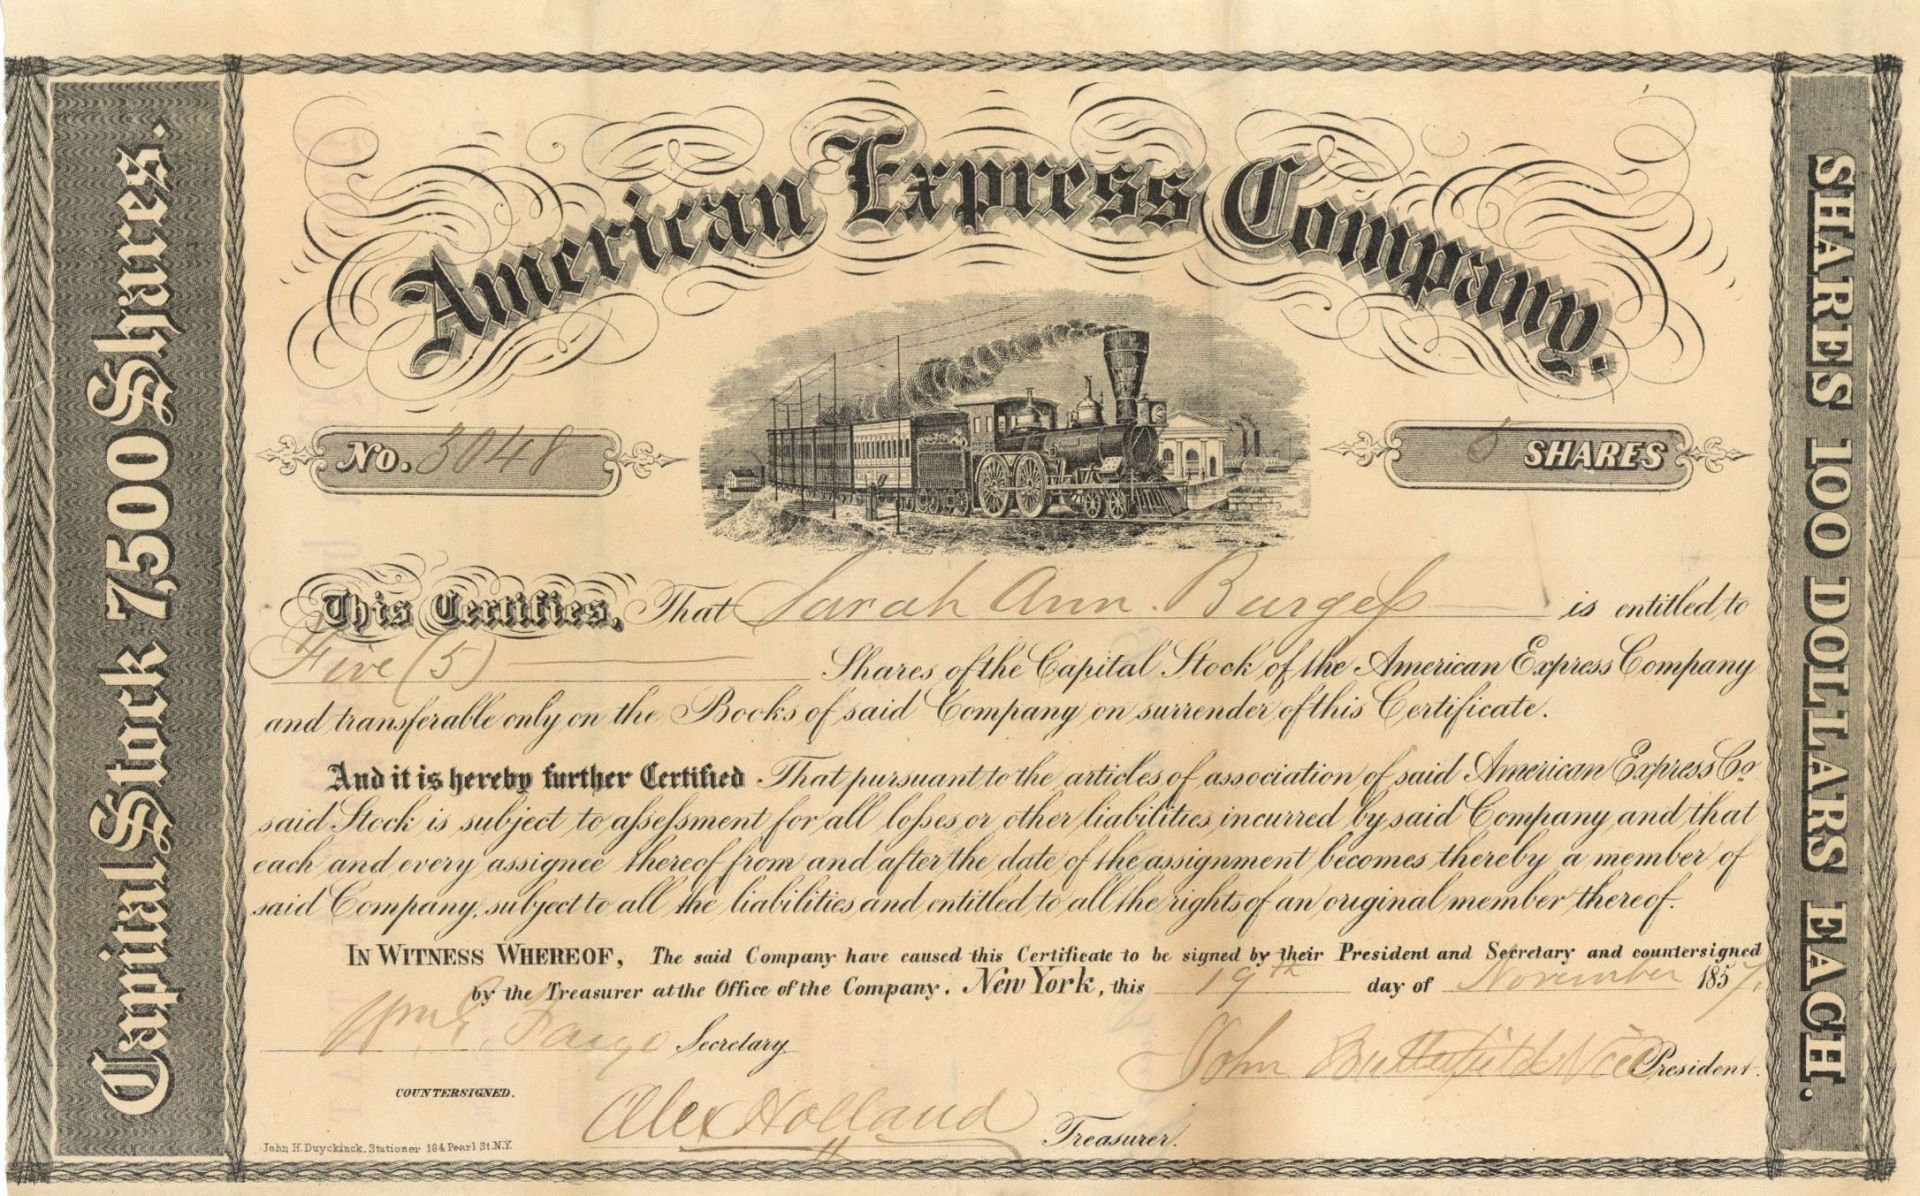 Capital Stock 7,500 Shares.
American Express Company.
No. 3048
5 SHARES
This Certifies, That Sarah Ann Burgess is entitled to
Five (5) Shares of the Capital Stock of the American Express Company
and transferable only on the Books of said Company on surrender of this Certificate.
And it is hereby further Certified That pursuant to the articles of association of said American Express Co.
said Stock is subject to assessment for all losses or other liabilities incurred by said Company and that
each and every assignee thereof from and after the date of the assignment becomes thereby a member of
said Company, subject to all the liabilities and entitled to all the rights of an original member thereof.
IN WITNESS WHEREOF, The said Company have caused this Certificate to be signed by their President and Secretary and countersigned
by the Treasurer at the Office of the Company. New York, this 19th day of November 1857.
Wm. G. Fargo Secretary
John Butterfield Vice President.
COUNTERSIGNED.
Alex Holland Treasurer.
John H. Duyckinck, Stationer 164 Pearl St. N.Y.
SHARES 100 DOLLARS EACH.